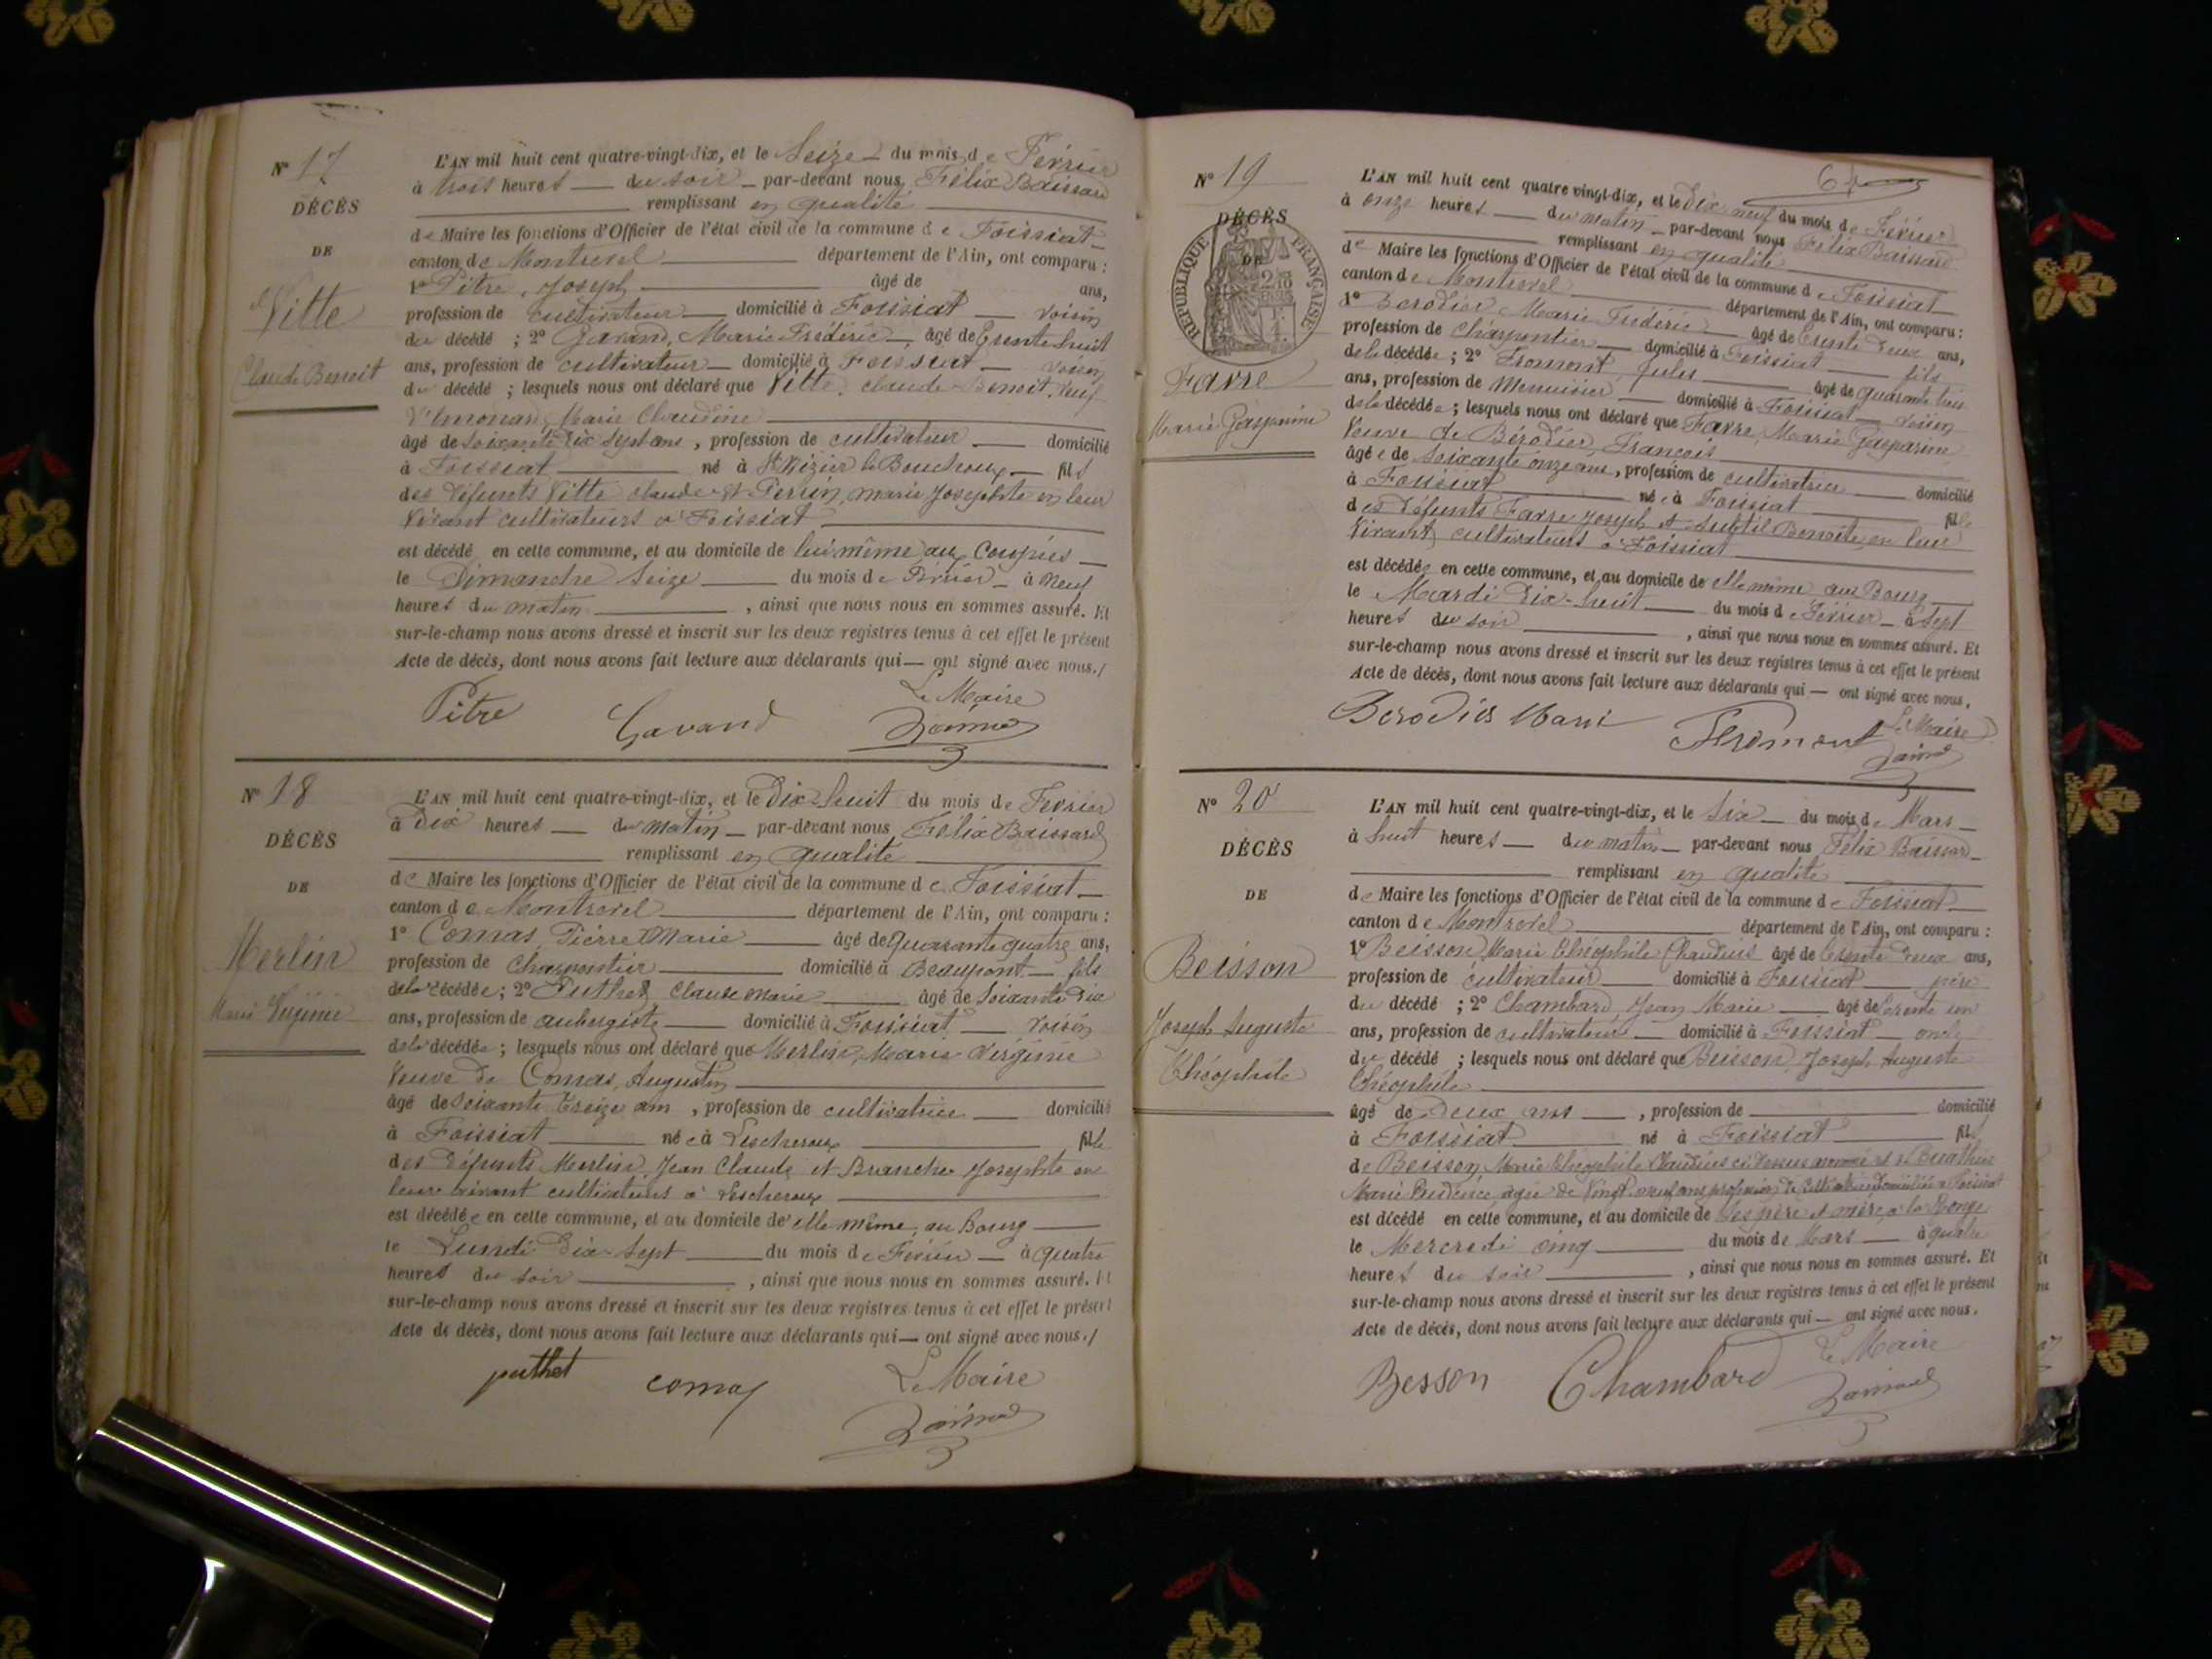 N° 17
DÉCÈS
DE
Vitte
Claude Benoit
L'AN mil huit cent quatre-vingt-dix, et le Seize du mois de Février
à trois heures du soir par-devant nous Félix Baissard
remplissant en qualité
de Maire les fonctions d'Officier de l'état civil de la commune de Foissiat
canton de Montrevel département de l'Ain, ont comparu :
1° Pitre, Joseph âgé de ans,
profession de cultivateur domicilié à Foissiat voisin
du décédé ; 2° Gavand, Marie Frédéric âgé de trente huit
ans, profession de cultivateur domicilié à Foissiat voisin
du décédé ; lesquels nous ont déclaré que Vitte, Claude Benoit, veuf
Marie Claudine
âgé de soixante dix sept ans, profession de cultivateur domicilié
à Foissiat né à St Nizier le Bouchoux fils
des défunts Vitte Claude et Perrin, Marie Josephte en leur
vivant cultivateurs à Foissiat
est décédé en cette commune, et au domicile de lui même aux
le Dimanche Seize du mois de Février à Neuf
heures du matin , ainsi que nous nous en sommes assuré. Et
sur-le-champ nous avons dressé et inscrit sur les deux registres tenus à cet effet le présent
Acte de décès, dont nous avons fait lecture aux déclarants qui — ont signé avec nous./
Le Maire
Pitre Gavand
N° 18
DÉCÈS
DE
Merlin
Marie Virginie
L'AN mil huit cent quatre-vingt-dix, et le Dix huit du mois de Février
à Dix heures du Matin par-devant nous Félix Baissard
remplissant en qualité
de Maire les fonctions d'Officier de l'état civil de la commune de Foissiat
canton de Montrevel département de l'Ain, ont comparu :
1° Comas, Pierre Marie âgé de Quarante quatre ans,
profession de Charpentier domicilié à Beaupont fils
de la décédée ; 2° Puthet Claude Marie âgé de Soixante dix
ans, profession de aubergiste domicilié à Foissiat voisin
de la décédée ; lesquels nous ont déclaré que Merlin, Marie Virginie
Veuve de Comas, Augustin
âgé de soixante treize ans, profession de cultivatrice domicilié
à Foissiat née à Lescheroux fille
des défunts Merlin Jean Claude et Branche Josephte en
leur vivant cultivateurs à Lescheroux
est décédée en cette commune, et au domicile de elle même, au Bourg
le Lundi Dix-Sept du mois de Février à quatre
heures du soir , ainsi que nous nous en sommes assuré. Et
sur-le-champ nous avons dressé et inscrit sur les deux registres tenus à cet effet le présent
Acte de décès, dont nous avons fait lecture aux déclarants qui — ont signé avec nous./
puthet comas Le Maire
N° 19
DÉCÈS
DE
RÉPUBLIQUE FRANÇAISE
Favre
Marie Gasparine
L'AN mil huit cent quatre vingt-dix, et le Dix neuf du mois de Février
à onze heures du matin par-devant nous Félix Baissard
remplissant en qualité
de Maire les fonctions d'Officier de l'état civil de la commune de Foissiat
canton de Montrevel département de l'Ain, ont comparu :
1° Berodier Marie Frédéric âgé de trente deux ans,
profession de Charpentier domicilié à Foissiat fils
de la décédée ; 2° Fromont Jules âgé de quarante trois
ans, profession de Menuisier domicilié à Foissiat voisin
de la décédée ; lesquels nous ont déclaré que Favre, Marie Gasparine
Veuve de Bérodier, François
âgée de soixante onze ans, profession de cultivatrice domicilié
à Foissiat née à Foissiat fille
des défunts Favre Joseph et Subtil Benoite, en leur
vivant cultivateurs à Foissiat
est décédée en cette commune, et au domicile de elle même au Bourg
le Mardi Dix-huit du mois de Février à Sept
heures du soir , ainsi que nous nous en sommes assuré. Et
sur-le-champ nous avons dressé et inscrit sur les deux registres tenus à cet effet le présent
Acte de décès, dont nous avons fait lecture aux déclarants qui — ont signé avec nous.
Berodier Mari Fromont Le Maire
N° 20
DÉCÈS
DE
Beisson
Joseph Auguste
Théophile
L'AN mil huit cent quatre-vingt-dix, et le Six du mois de Mars
à huit heures du matin par-devant nous Félix Baissard
remplissant en qualité
de Maire les fonctions d'Officier de l'état civil de la commune de Foissiat
canton de Montrevel département de l'Ain, ont comparu :
1° Beisson, Marie Théophile Claudius âgé de trente deux ans,
profession de cultivateur domicilié à Foissiat père
du décédé ; 2° Chambard, Jean Marie âgé de trente un
ans, profession de cultivateur domicilié à Foissiat oncle
du décédé ; lesquels nous ont déclaré que Beisson, Joseph Auguste
Théophile
âgé de Deux ans , profession de domicilié
à Foissiat né à Foissiat fils
de Beisson, Marie Théophile Claudius ci dessus nommé et de
Marie Prudence âgée de vingt neuf ans profession de cultivatrice domiciliée à Foissiat
est décédé en cette commune, et au domicile de ses père et mère, à la
le Mercredi cinq du mois de Mars à quatre
heures du soir , ainsi que nous nous en sommes assuré. Et
sur-le-champ nous avons dressé et inscrit sur les deux registres tenus à cet effet le présent
Acte de décès, dont nous avons fait lecture aux déclarants qui — ont signé avec nous.
Le Maire
Besson Chambard